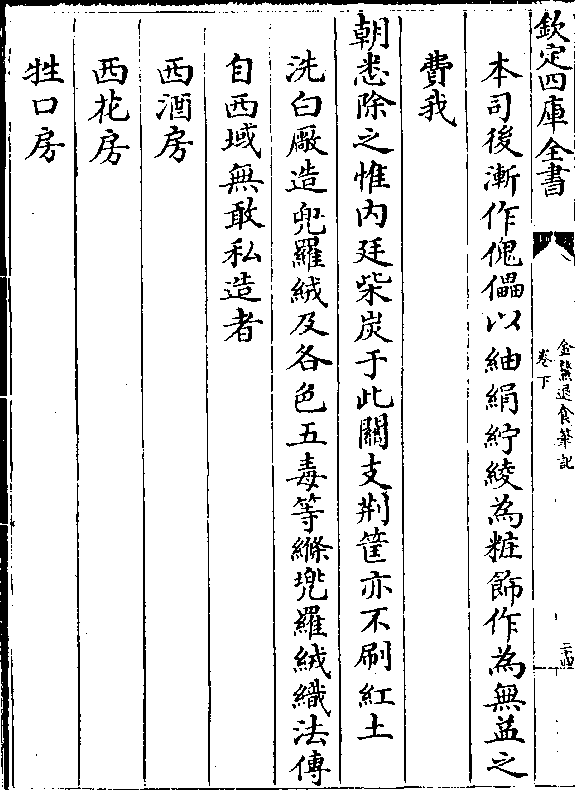 欽定四庫全書
金鰲退食筆記
卷下
二十四
本司後漸作傀儡以紬絹紵綾為粧飾作為無益之
費我
朝悉除之惟内廷柴炭于此關支荆筐亦不刷紅土
洗白厰造兜羅絨及各色五毒等絛兜羅絨織法傳
自西域無敢私造者
西酒房
西花房
牲口房